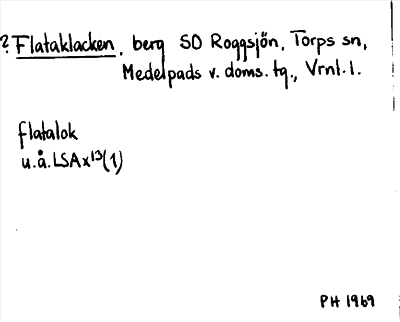 ? Flataklacken, berg SO Roggsjön, Torps sn,
Medelpads v. doms. tg., Vrnl. l.
flatalok
u.å. LSA x¹³(1)
PH 1969